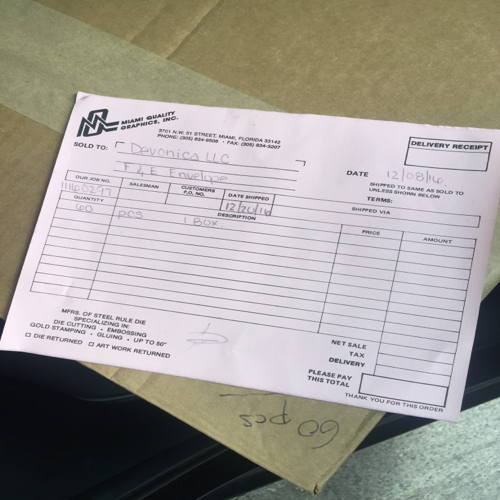 MIAMI QUALITY
GRAPHICS, INC.
3701 N.W. 51 STREET, MIAMI, FLORIDA 33142
PHONE: (305) 634-9506 • FAX: (305) 634-3207
DELIVERY RECEIPT
SOLD TO: Devonics LLC
F & E Envelope
DATE 12/08/16
SHIPPED TO SAME AS SOLD TO
UNLESS SHOWN BELOW
TERMS:
OUR JOB NO. SALESMAN CUSTOMERS P.O. NO. DATE SHIPPED SHIPPED VIA
11160297 12/20/16
QUANTITY DESCRIPTION PRICE AMOUNT
60 pcs 1 BOX
MFRS. OF STEEL RULE DIE
SPECIALIZING IN:
DIE CUTTING • EMBOSSING
GOLD STAMPING • GLUING • UP TO 80"
DIE RETURNED ART WORK RETURNED
NET SALE
TAX
DELIVERY
PLEASE PAY
THIS TOTAL
THANK YOU FOR THIS ORDER
60 pcs